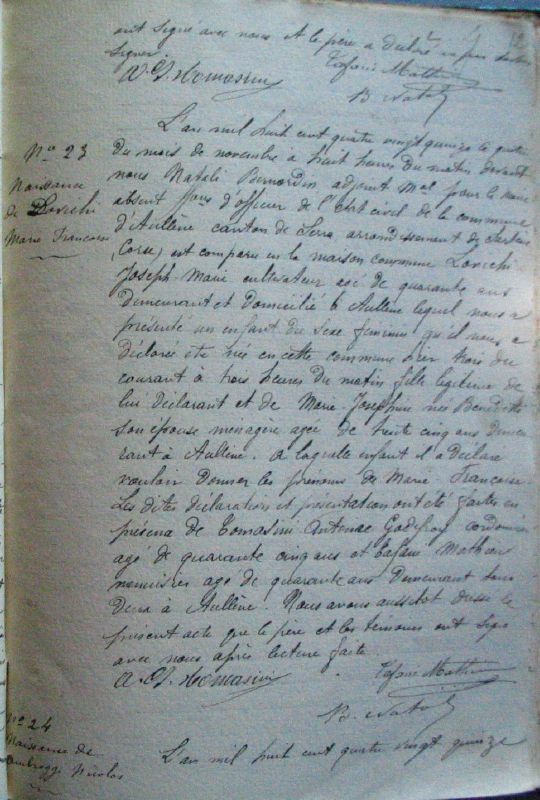 ont signé avec nous et le père a déclaré ne pas savoir
signer.
A. G. Tomasini
Tafani Mathieu
B. Natali
No 23
Naissance
de Lovichi
Marie Françoise
L'an mil huit cent quatre vingt quinze le quatre
du mois de novembre à huit heures du matin devant
nous Natali Bernardin adjoint mal pour le maire
absent ffons d'officier de l'état civil de la commune
d'Aullène canton de Serra arrondissement de Sartène
(Corse) est comparu en la maison commune Lovichi
Joseph-Marie cultivateur agé de quarante ans
demeurant et domicilié à Aullène lequel nous a
présenté un enfant du sexe féminin qu'il nous a
déclaré etre née en cette commune hier trois du
courant à trois heures du matin fille légitime de
lui déclarant et de Marie-Josephine née Benedetti
son épouse ménagère agée de trente cinq ans demeu
rant à Aullène. à laquelle enfant il a déclaré
vouloir donner les prénoms de Marie-Françoise
Les dites déclaration et présentation ont été faites en
présence de Tomasini Antoine Godefroy cordonnier
agé de quarante cinq ans et Tafani Mathieu
menuisier agé de quarante ans demeurant tous
deux à Aullène. Nous avons aussitot dressé le
présent acte que le père et les témoins ont signé
avec nous après lecture faite.
A. G. Tomasini
Tafani Mathieu
B. Natali
No 24
Naissance de
Nicolas
L'an mil huit cent quatre vingt quinze